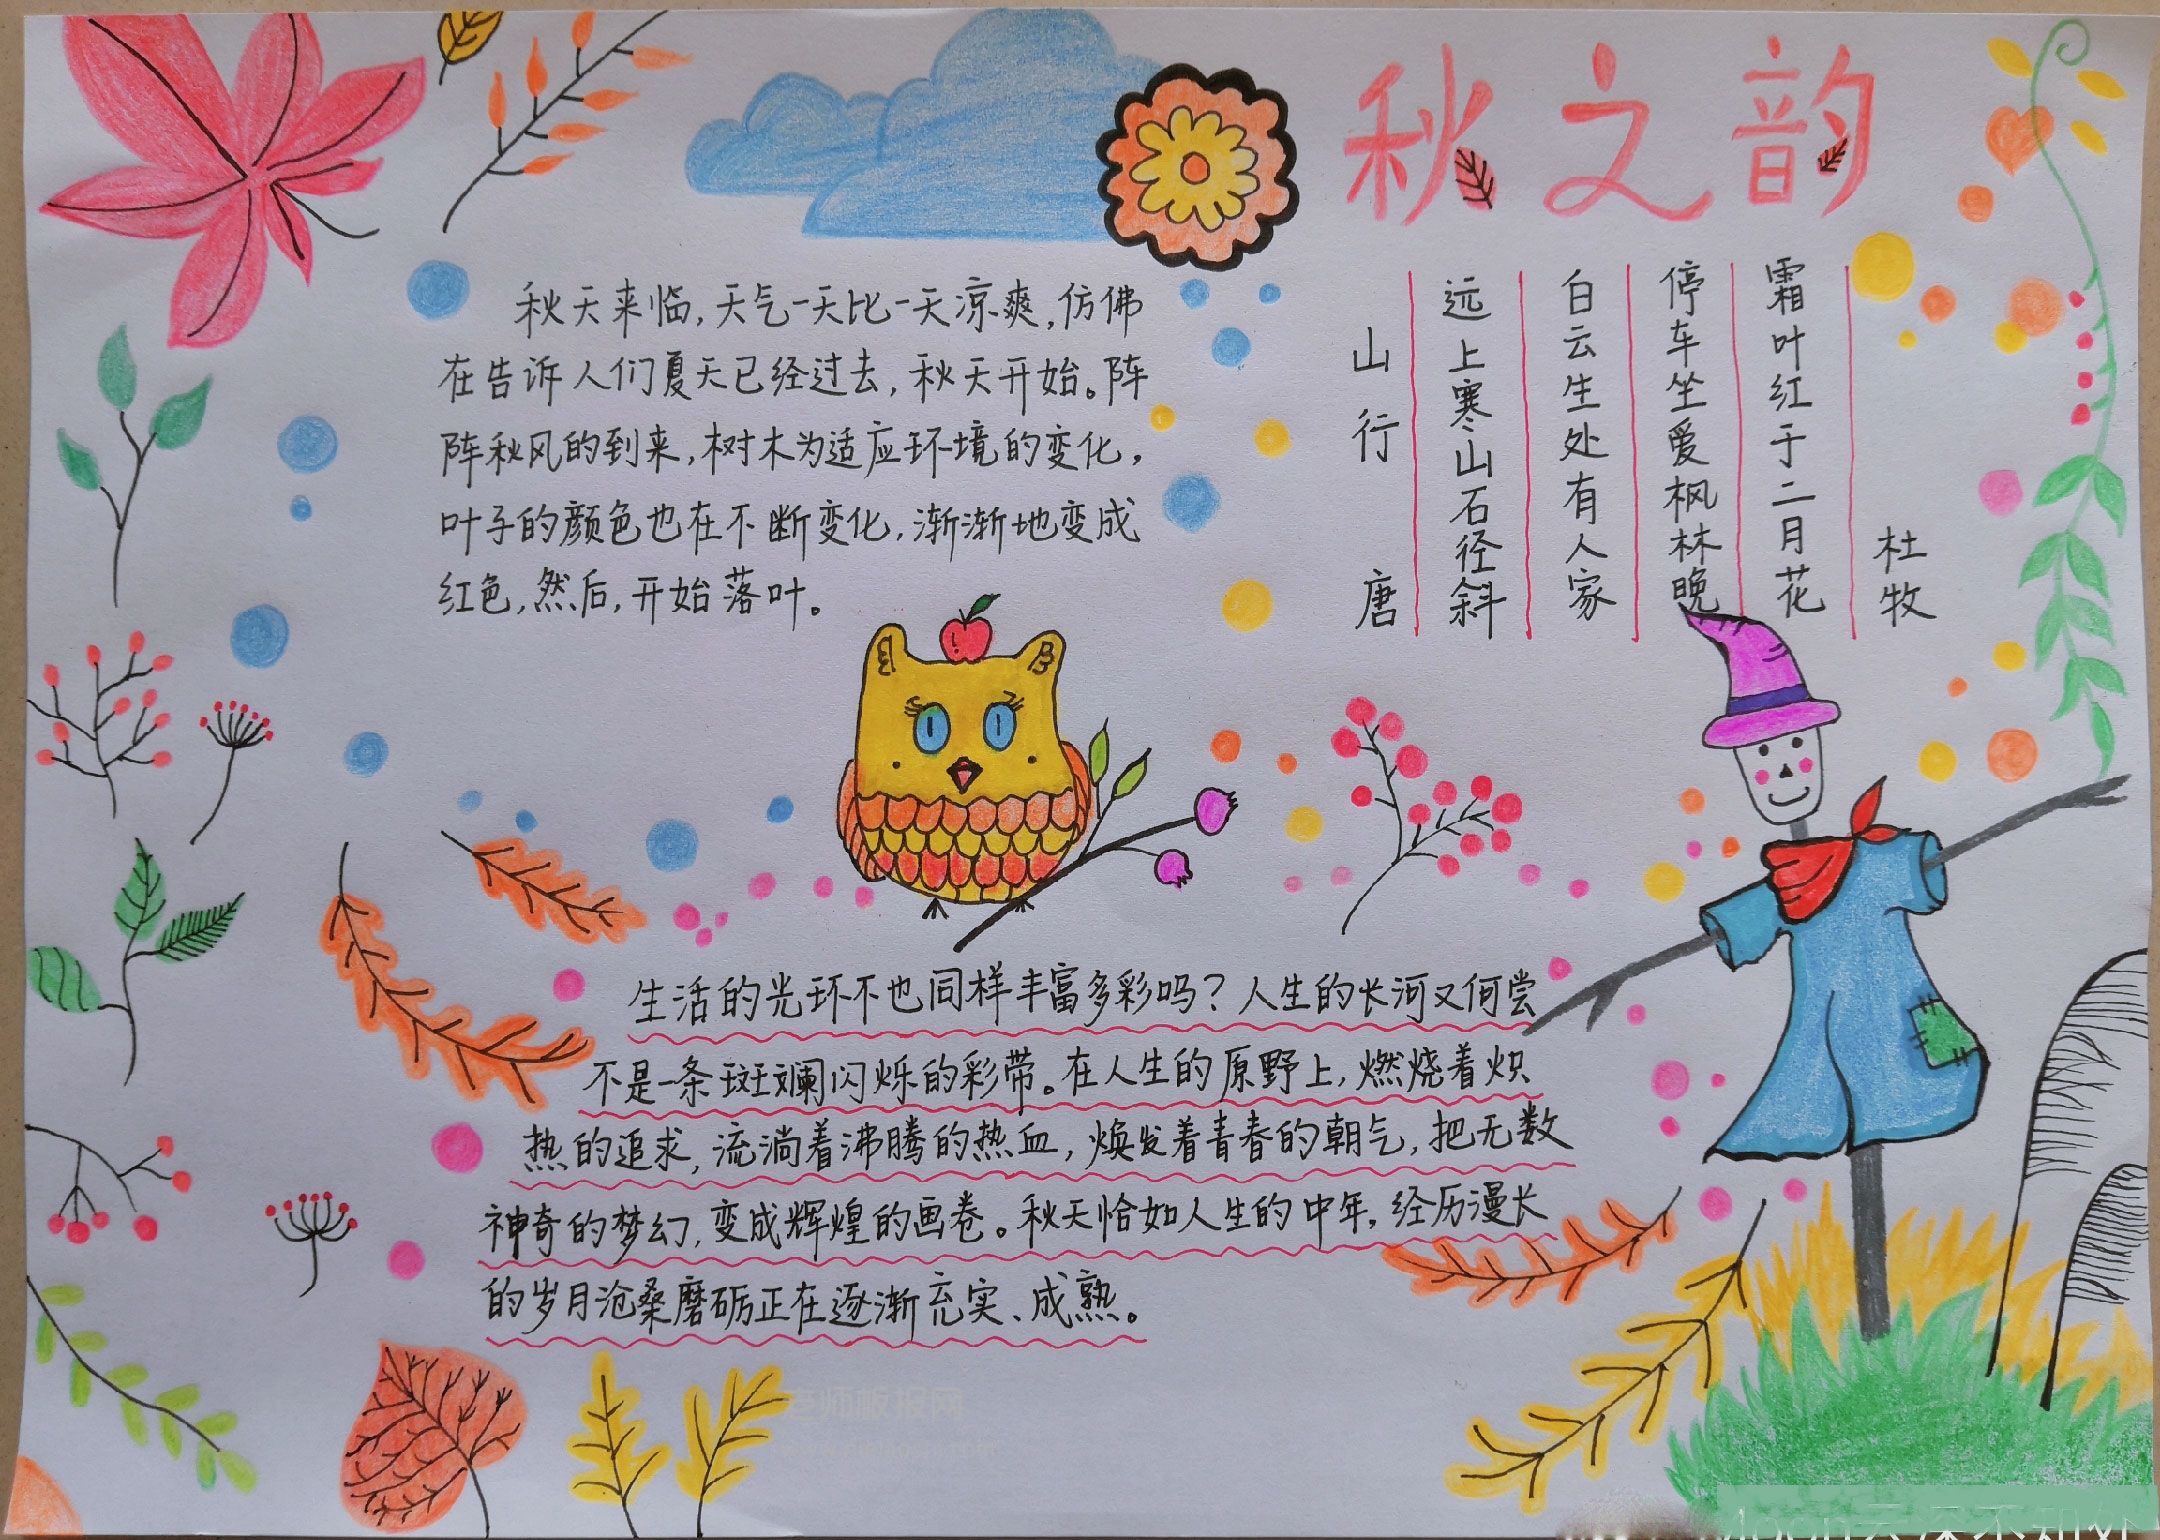 秋之韵
秋天来临,天气一天比一天凉爽,仿佛
在告诉人们夏天已经过去,秋天开始。阵
阵秋风的到来,树木为适应环境的变化,
叶子的颜色也在不断变化,渐渐地变成
红色,然后,开始落叶。
山行 唐
远上寒山石径斜
白云生处有人家
停车坐爱枫林晚
霜叶红于二月花
杜牧
生活的光环不也同样丰富多彩吗?人生的长河又何尝
不是一条斑斓闪烁的彩带。在人生的原野上,燃烧着炽
热的追求,流淌着沸腾的热血,焕发着青春的朝气,把无数
神奇的梦幻,变成辉煌的画卷。秋天恰如人生的中年,经历漫长
的岁月沧桑磨砺正在逐渐充实、成熟。
老师板报网